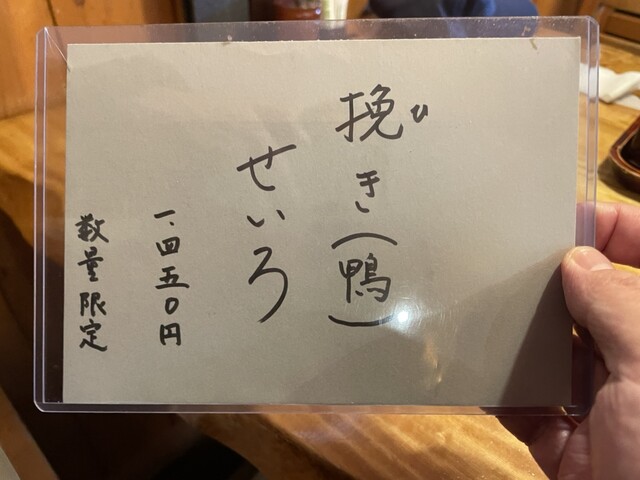 挽き(鴨)
ひ
せいろ
一、四五〇円
数量限定